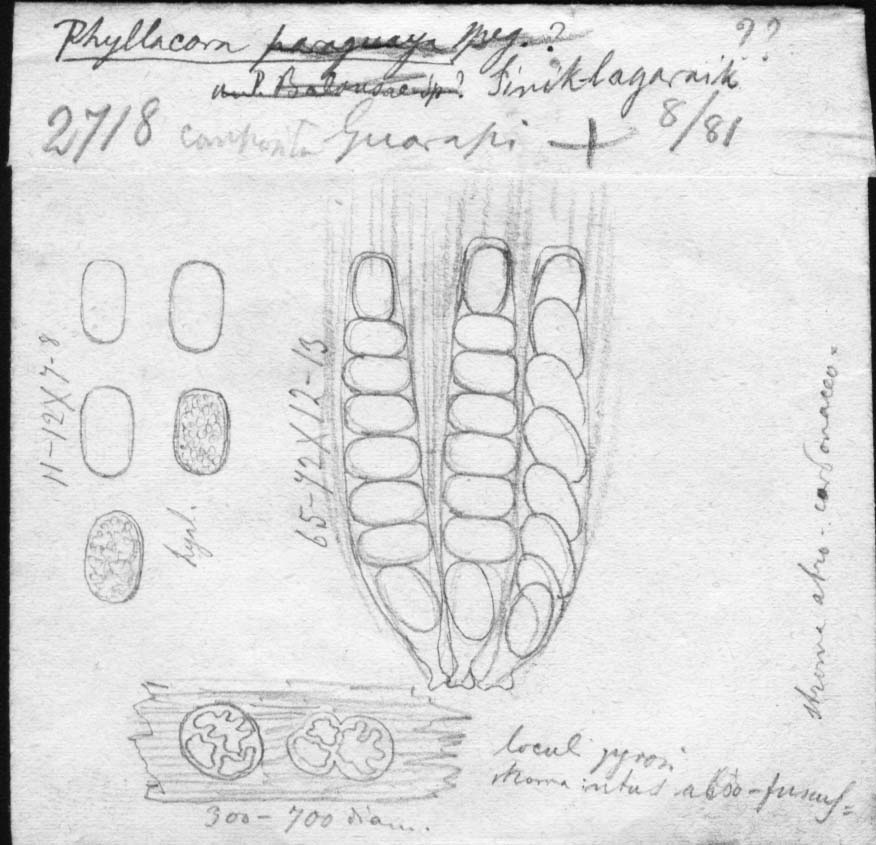 Phyllacora paraguaya Speg. ?
??
an P. Balansae sp ?
2718 composita Guarapi + 8/81
11-12 X 7-8
hyal.
65-72 X 12-13
stroma atro-carbonaceo=
loculi
stroma intus albo-fumos=
300-700 diam.